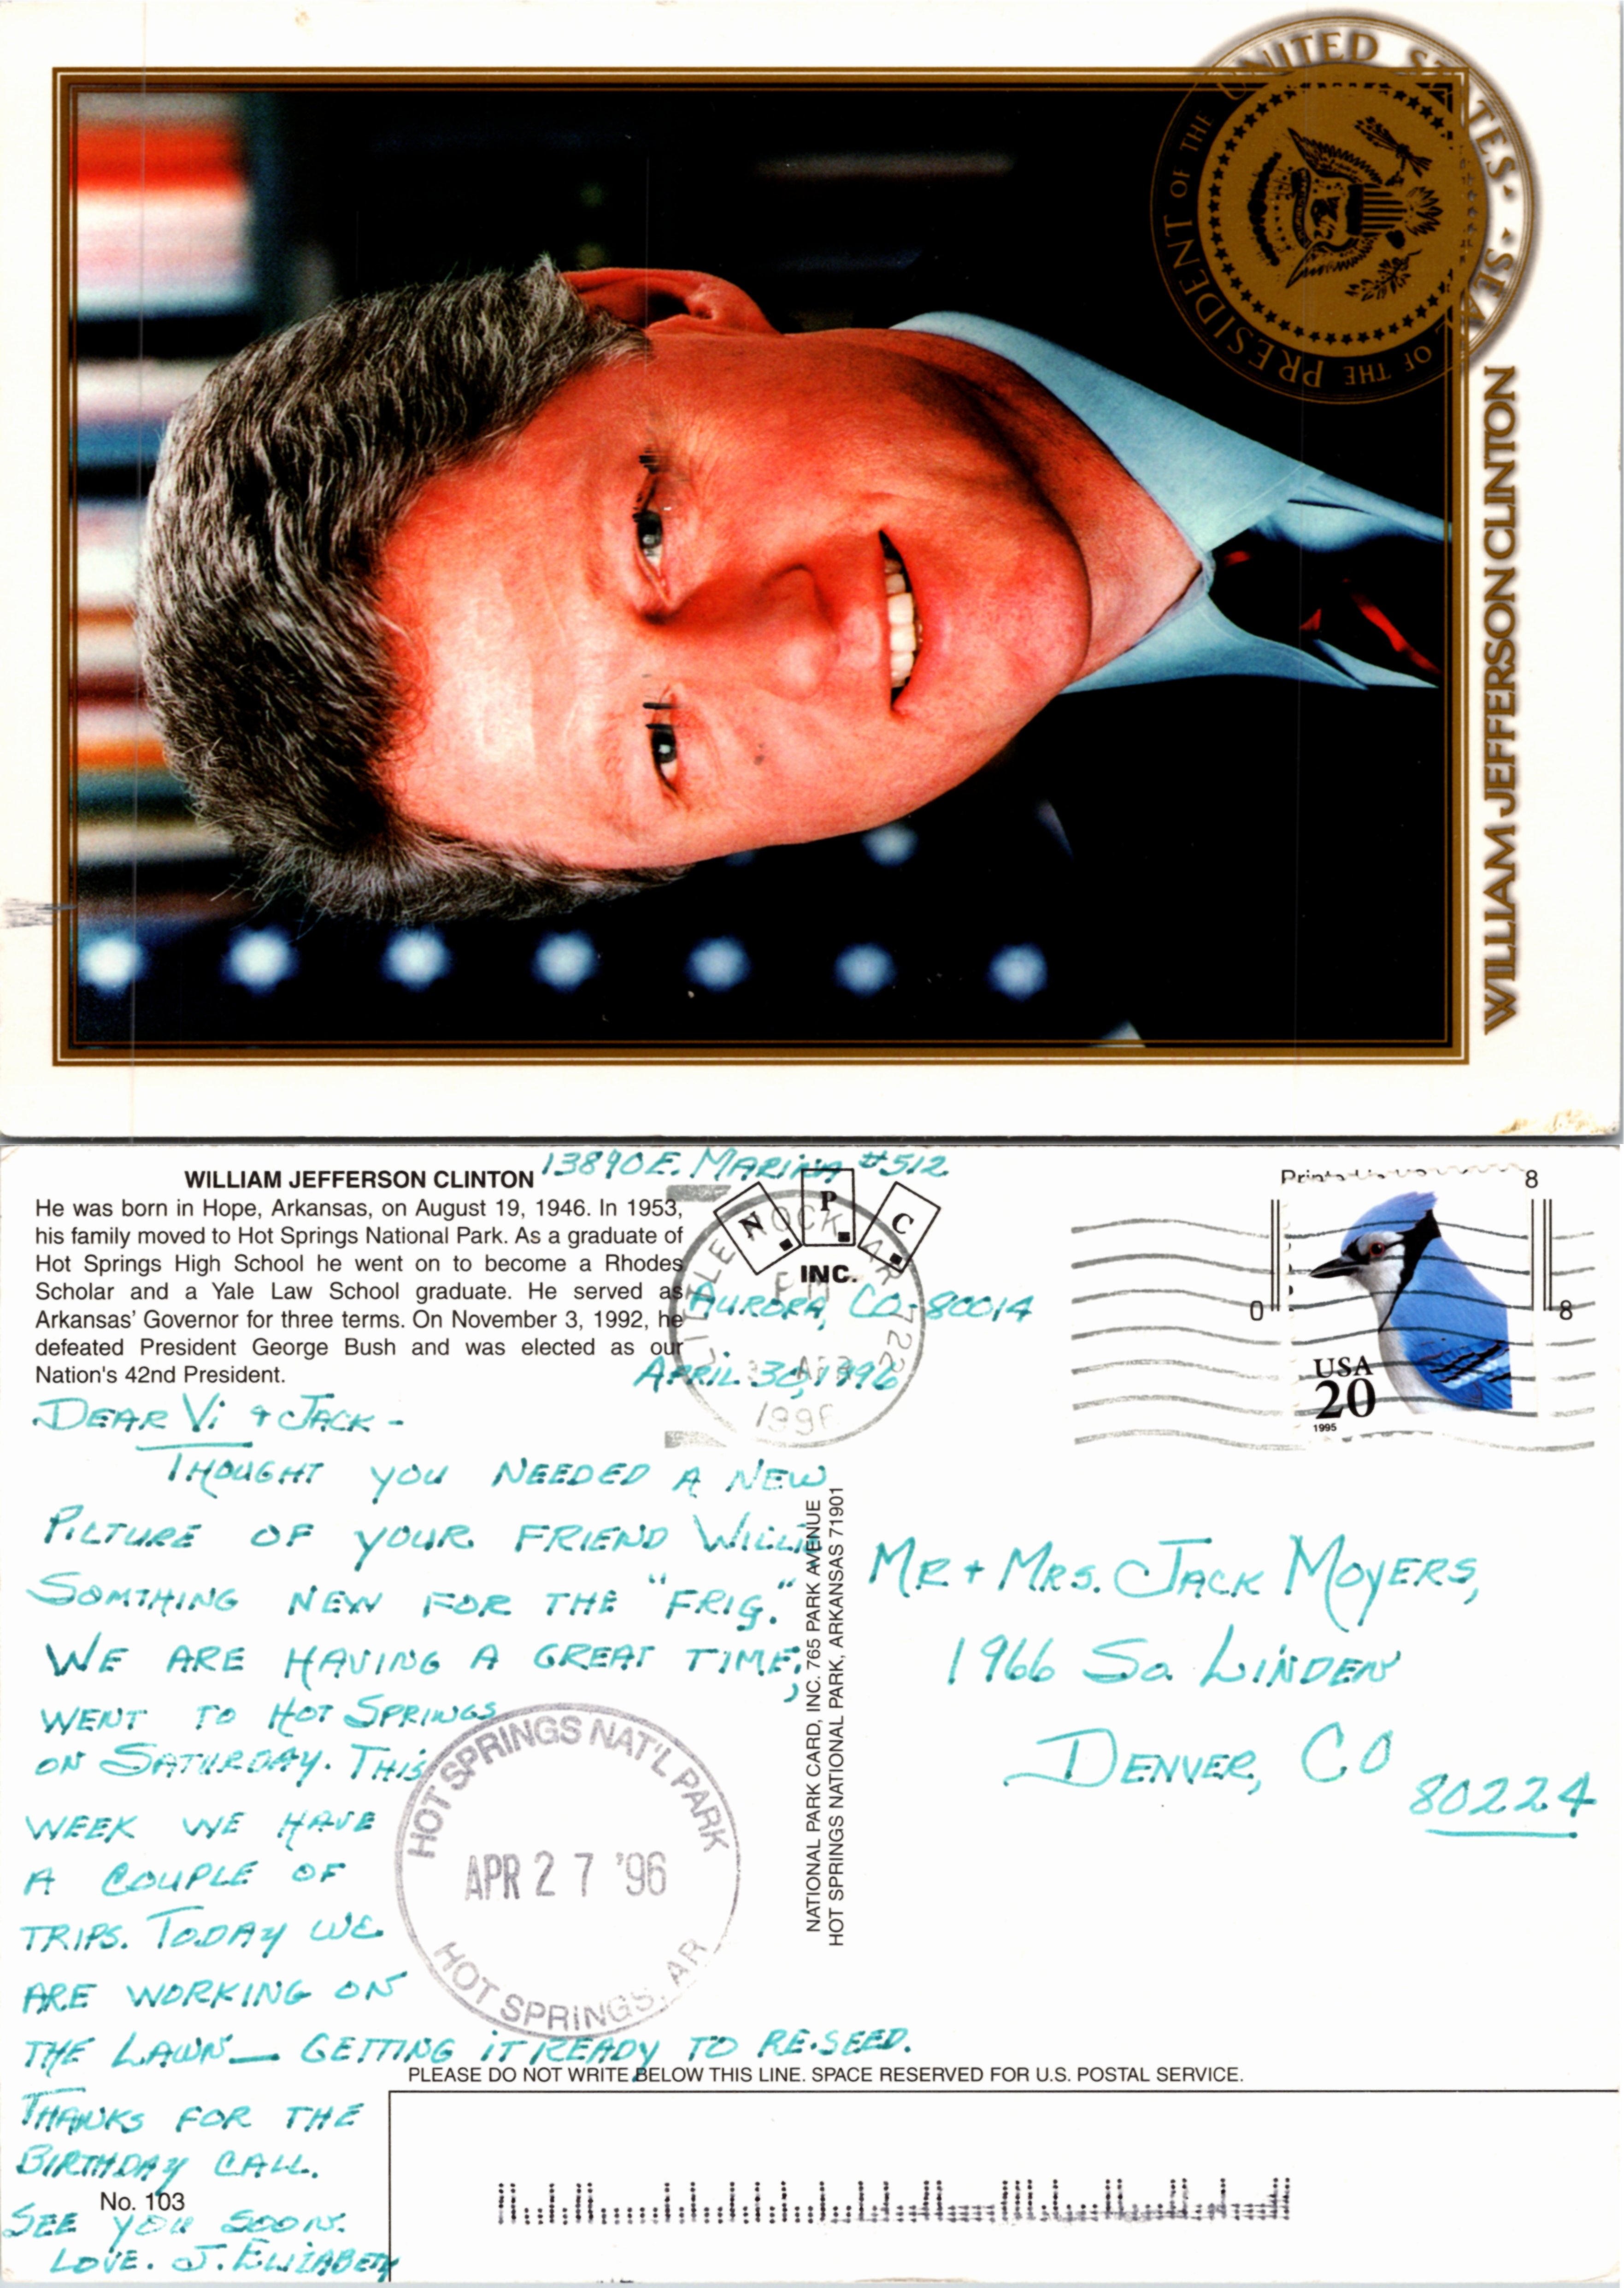 SEAL OF THE PRESIDENT OF THE UNITED STATES
WILLIAM JEFFERSON CLINTON
WILLIAM JEFFERSON CLINTON
He was born in Hope, Arkansas, on August 19, 1946. In 1953,
his family moved to Hot Springs National Park. As a graduate of
Hot Springs High School he went on to become a Rhodes
Scholar and a Yale Law School graduate. He served as
Arkansas' Governor for three terms. On November 3, 1992, he
defeated President George Bush and was elected as our
Nation's 42nd President.
13890 E. MARINA #512
AURORA, CO- 80014
APRIL 30, 1996
N P C
INC.
LITTLE ROCK AR 722
PM
1996
DEAR Vi & JACK -
THOUGHT YOU NEEDED A NEW
PICTURE OF YOUR FRIEND WILLIE
SOMTHING NEW FOR THE "FRIG."
WE ARE HAVING A GREAT TIME,
WENT TO HOT SPRINGS
ON SATURDAY. THIS
WEEK WE HAVE
A COUPLE OF
TRIPS. TODAY WE
ARE WORKING ON
THE LAWN — GETTING IT READY TO RE-SEED.
THANKS FOR THE
BIRTHDAY CALL.
SEE YOU SOON.
LOVE. J. ELIZABETH
No. 103
HOT SPRINGS NAT'L PARK
APR 27 '96
HOT SPRINGS, AR
NATIONAL PARK CARD, INC. 765 PARK AVENUE
HOT SPRINGS NATIONAL PARK, ARKANSAS 71901
8
0
8
USA
20
1995
MR + MRS. JACK MOYERS,
1966 So. LINDEN
DENVER, CO
80224
PLEASE DO NOT WRITE BELOW THIS LINE. SPACE RESERVED FOR U.S. POSTAL SERVICE.